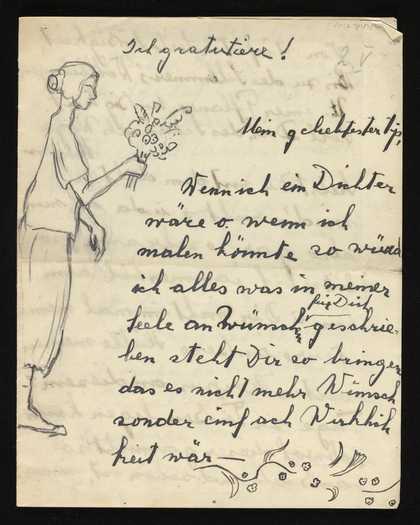 Ich gratuliere!
Mein geliebtester
Wenn ich ein Dichter
wäre o. wenn ich
malen könnte so würd
ich alles was in meiner
für Dich
Seele an Wünsch geschrie-
ben steht Dir so bringen
das es nicht mehr Wünsch
sonder einfach Wirklich
keit wär —